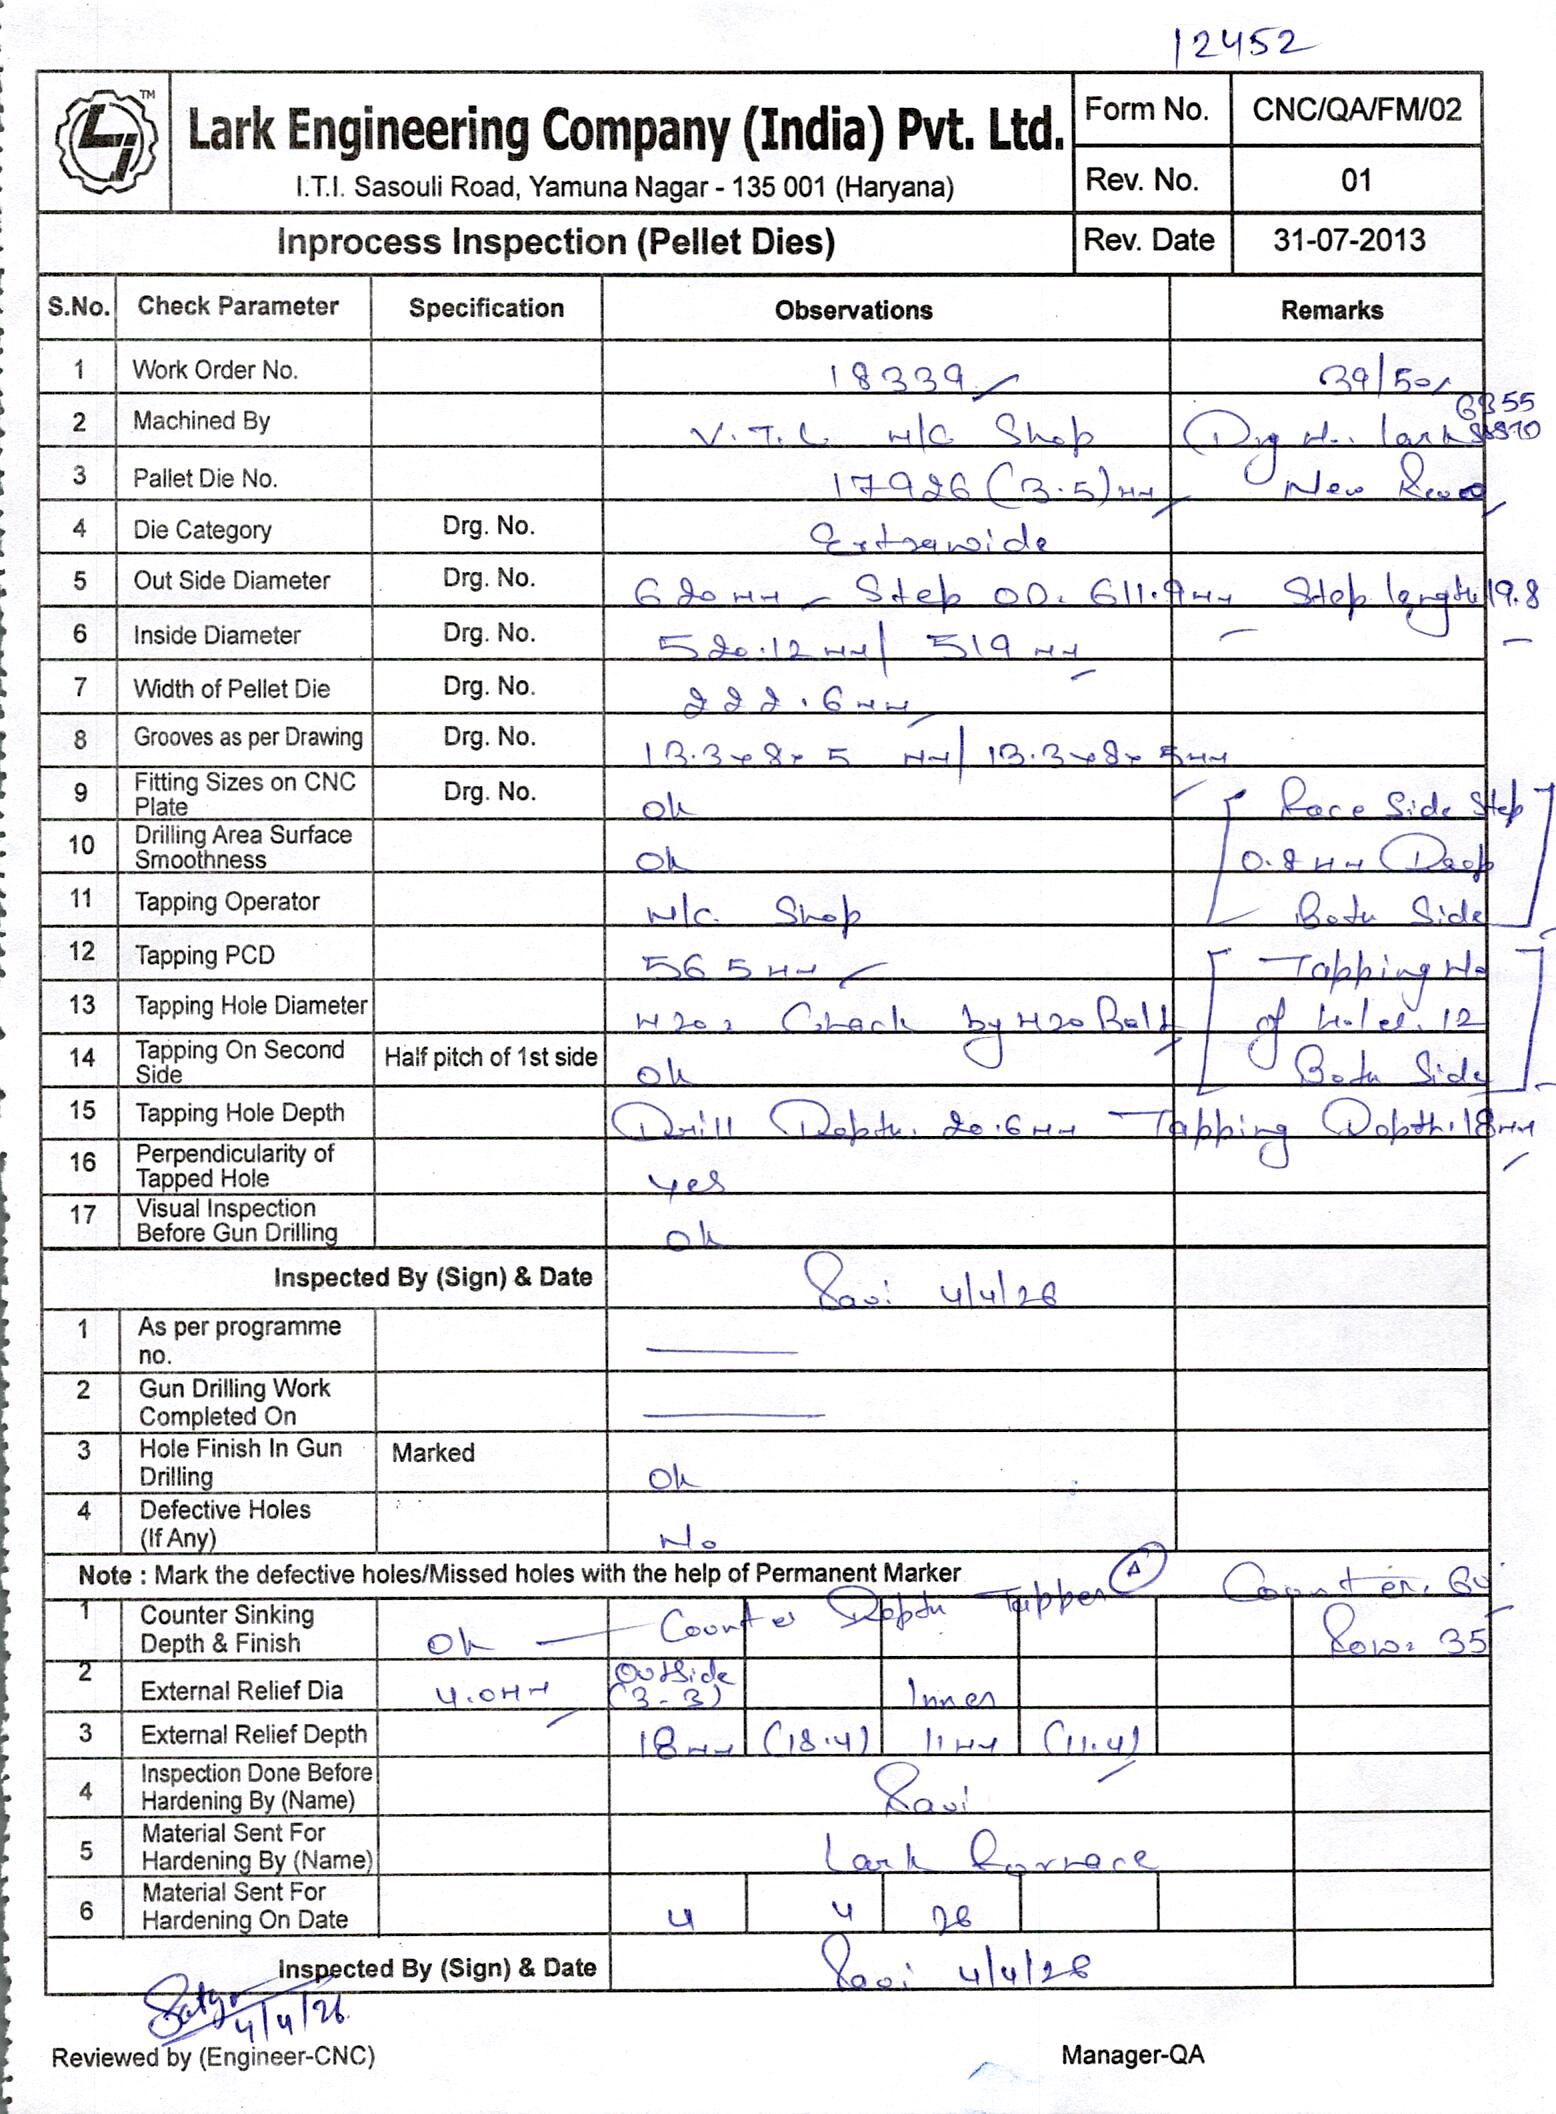 12452
TM
Lark Engineering Company (India) Pvt. Ltd.
I.T.I. Sasouli Road, Yamuna Nagar - 135 001 (Haryana)
Form No. CNC/QA/FM/02
Rev. No. 01
Inprocess Inspection (Pellet Dies) Rev. Date 31-07-2013
S.No. Check Parameter Specification Observations Remarks
1 Work Order No. 18339 39/50
2 Machined By V.T.L M/C Shop Drg No. lark 6355
3 Pallet Die No. 17926 (3.5)mm New
4 Die Category Drg. No. Extrawide
5 Out Side Diameter Drg. No. 620mm - Step OD. 611.9mm Step length 19.8
6 Inside Diameter Drg. No. 520.12mm/ 519mm
7 Width of Pellet Die Drg. No. 222.6mm
8 Grooves as per Drawing Drg. No. 13.3x8x5 mm/ 13.3x8x5mm
9 Fitting Sizes on CNC Plate Drg. No. Ok Face Side Step
10 Drilling Area Surface Smoothness Ok 0.8mm Deep
11 Tapping Operator M/C Shop Both Side
12 Tapping PCD 565mm Tapping No
13 Tapping Hole Diameter M20, Check by M20 Bolt of holes. 12
14 Tapping On Second Side Half pitch of 1st side Ok Both Side
15 Tapping Hole Depth Drill Depth. 20.6mm Tapping Depth. 18mm
16 Perpendicularity of Tapped Hole yes
17 Visual Inspection Before Gun Drilling Ok
Inspected By (Sign) & Date Ravi 4/4/26
1 As per programme no.
2 Gun Drilling Work Completed On
3 Hole Finish In Gun Drilling Marked Ok
4 Defective Holes (If Any) No
Note : Mark the defective holes/Missed holes with the help of Permanent Marker A Counter.
1 Counter Sinking Depth & Finish Ok — Counter Depth Tapper Row: 35
2 External Relief Dia 4.0mm Outside (3-3) Inner
3 External Relief Depth 18mm (18.4) 11mm (11.4)
4 Inspection Done Before Hardening By (Name) Ravi
5 Material Sent For Hardening By (Name) Lark Furnace
6 Material Sent For Hardening On Date 4 4 26
Inspected By (Sign) & Date Ravi 4/4/26
4/4/26
Reviewed by (Engineer-CNC) Manager-QA